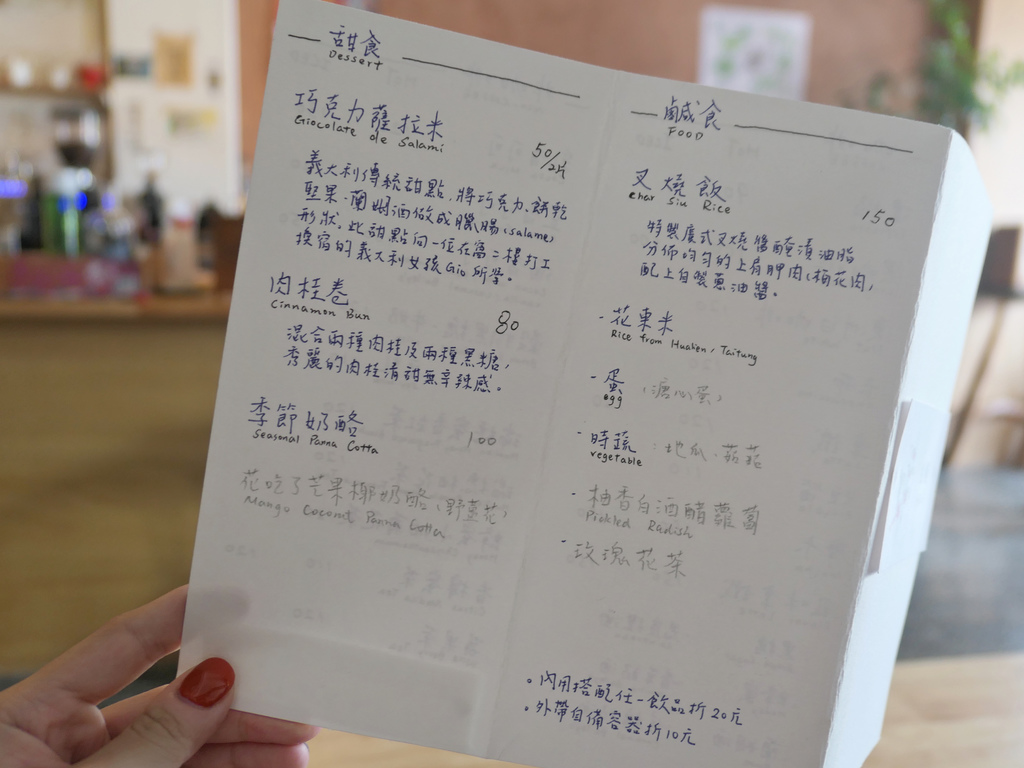 甜食
Dessert
巧克力薩拉米
Giocolate de Salami
50/2片
義大利傳統甜點,將巧克力.餅乾
堅果.蘭姆酒做成臘腸(salame)
形狀。此甜點向一位在富二樓打工
換宿的義大利女孩Gio所學。
肉桂卷
Cinnamon Bun
80
混合兩種肉桂及兩種黑糖,
秀麗的肉桂清甜無辛辣感。
季節奶酪
Seasonal Panna Cotta
100
花吃了芒果椰奶酪(野薑花)
Mango Coconut Panna Cotta
鹹食
FOOD
叉燒飯
char Siu Rice
150
特製廣式叉燒醬醃漬油脂
分佈均勻的上肩胛肉(梅花肉)
配上自製蔥油醬。
·花東米
Rice from Hualien, Taitung
·蛋(溏心蛋)
egg
·時蔬:地瓜.菇菇
vegetable
·柚香白酒醋蘿蔔
Pickled Radish
·玫瑰花茶
。內用搭配任一飲品折20元
。外帶自備容器折10元